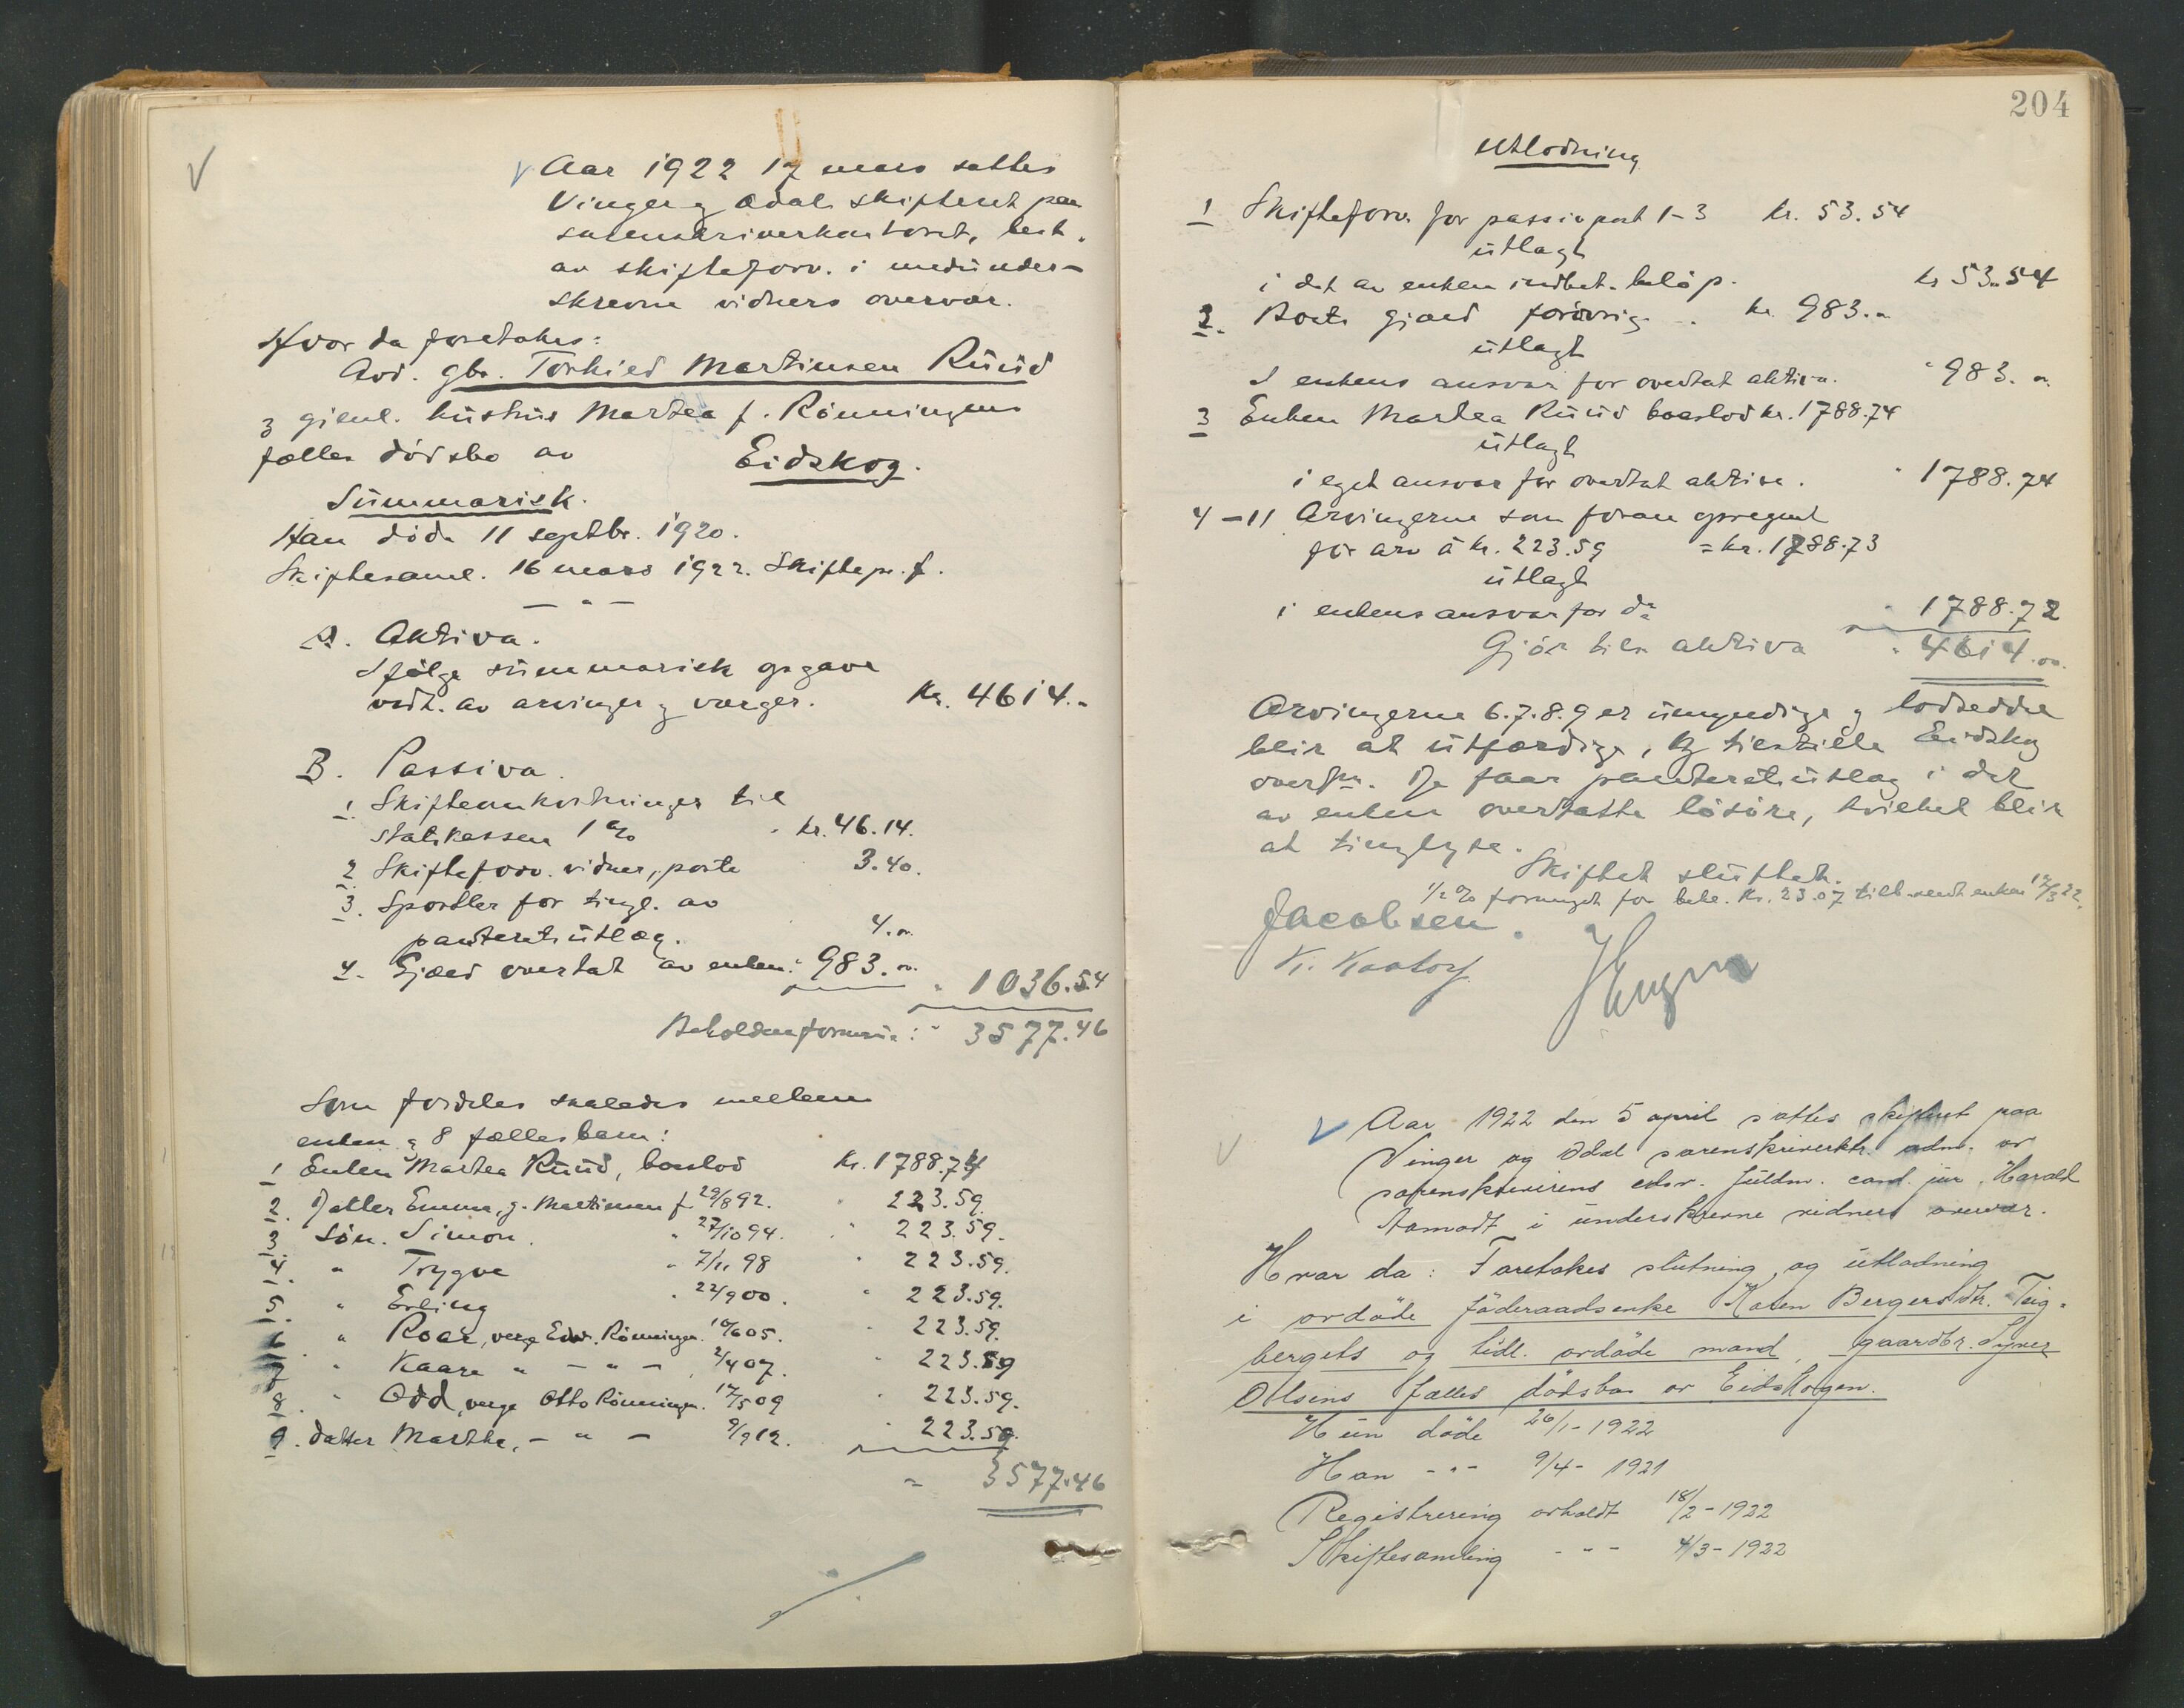 Aar 1922 17 mars sattes
Vinger og Odal skifteret paa
sorenskriverkontoret, best.
av skifteforv. i medunder-
skrevne vidners overvær.
Hvor da foretokes:
Avd. gbr. Torkild Martinsen Ruud
og gjenl. hustru Martea f. Rönningens
fælles dödsbo av Eidskog.
Summarisk.
Han döde 11 septbr. 1920.
Skiftesaml. 16 mars 1922. Skiftepr. f.
— " —
A. Aktiva.
Ifölge summarisk opgave
vedt. av arvinger og verger. Kr. 4614.-
B. Passiva.
1. Skifteomkostninger til
statskassen 1 % kr. 46.14.
2. Skifteforv. vidner, porto 3.40.
3. Sportler for tingl. av
panteretsutlæg. 4.-
4. Gjæld overtat av enken: 983.- " 1036.54
Beholden formue: " 3577.46
Som fordeles saaledes mellem
enken og 8 fællesbarn:
1 Enken Martea Ruud, boeslod Kr. 1788.74
2. Datter Emma, g. Martinsen f. 29/8 92. " 223.59.
3 Sön. Simon. " 27/10 94. " 223.59.
4. " Trygve " 7/11 98 " 223.59.
5. " Erling " 22/9 00. " 223.59.
6 " Roar, verge Edv. Rönningen. 10/6 05. " 223.59.
7 " Kaare " — " — 2/4 07. " 223.59
8. " Odd, verge Otto Rönningen. 17/5 09 " 223.59.
9. datter Martha, — " — 9/9 12. " 223.59.
" 3577.46
204
Utlodning
1 Skifteforv. for passivpost 1-3 kr. 53.54
utlagt
i det av enken indbet. belöp. kr 53.54
2. Boets gjæld forövrig - kr. 983.-
utlagt
I enkens ansvar for overtat aktiva. " 983.-
3 Enken Martea Ruud boeslod kr. 1788.74
utlagt
i eget ansvar for overtat aktiva. " 1788.74
4-11 Arvingerne som foran opregnet
for arv á kr. 223.59 = kr. 1788.73
utlagt
i enkens ansvar for do " 1788.72
Gjör bets aktiva " 4614.-
Arvingerne 6.7.8.9 er umyndige og lodsedde
blir at utfærdige, og tilstille Eidskog
overf. De faar panteretsutlæg i det
av enken overtatte lösöre, hvilket blir
at tinglyse.
Skiftet sluttet.
1/2 % forringet for bet. Kr. 23.07 tilb. sendt enken 17/3 22.
Jacobsen.
K. Kaatorp
Aar 1922 den 5 april sattes skifteret paa
Vinger og Odal sorenskriverktr. adm. av
sorenskriverens edsv. fuldm. cand. jur. Harald
Aamodt i underskrevne vidners overvær.
Hvor da: Foretokes slutning og utlodning
i avdöde föderaadsenke Karen Bergersdtr. Teig-
bergets og tidl. avdöde mand, gaardbr. Syver
Olsens fælles dödsbo av Eidskogen.
Hun döde 26/1-1922
Han - " - 9/4- 1921
Registrering avholdt 18/2-1922
Skiftesamling - " - 4/3-1922